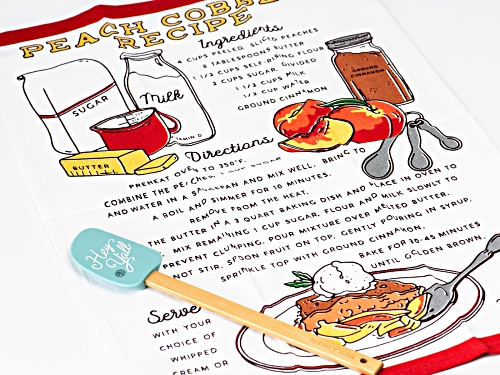 PEACH COBB
RECIPE
Ingredients
CUPS PEELED, SLICED PEACHES
8 TABLESPOONS BUTTER
1 1/2 CUPS SELF-RISING FLOUR
2 CUPS SUGAR, DIVIDED
1 1/2 CUPS MILK
1/2 CUP WATER
GROUND CINNAMON
SUGAR
Milk
VITAMIN D
BUTTER
GROUND
CINNAMON
Directions
PREHEAT OVEN TO 350°F.
COMBINE THE PEACHES, CUP SUGAR
AND WATER IN A SAUCEPAN AND MIX WELL. BRING TO
A BOIL AND SIMMER FOR 10 MINUTES.
REMOVE FROM THE HEAT.
THE BUTTER IN A 3 QUART BAKING DISH AND PLACE IN OVEN TO
MIX REMAINING 1 CUP SUGAR, FLOUR AND MILK SLOWLY TO
PREVENT CLUMPING. POUR MIXTURE OVER MELTED BUTTER.
NOT STIR. SPOON FRUIT ON TOP, GENTLY POURING IN SYRUP.
SPRINKLE TOP WITH GROUND CINNAMON.
BAKE FOR 30-45 MINUTES
UNTIL GOLDEN BROWN
Hey
Y'all
Serve
WITH YOUR
CHOICE OF
WHIPPED
CREAM OR